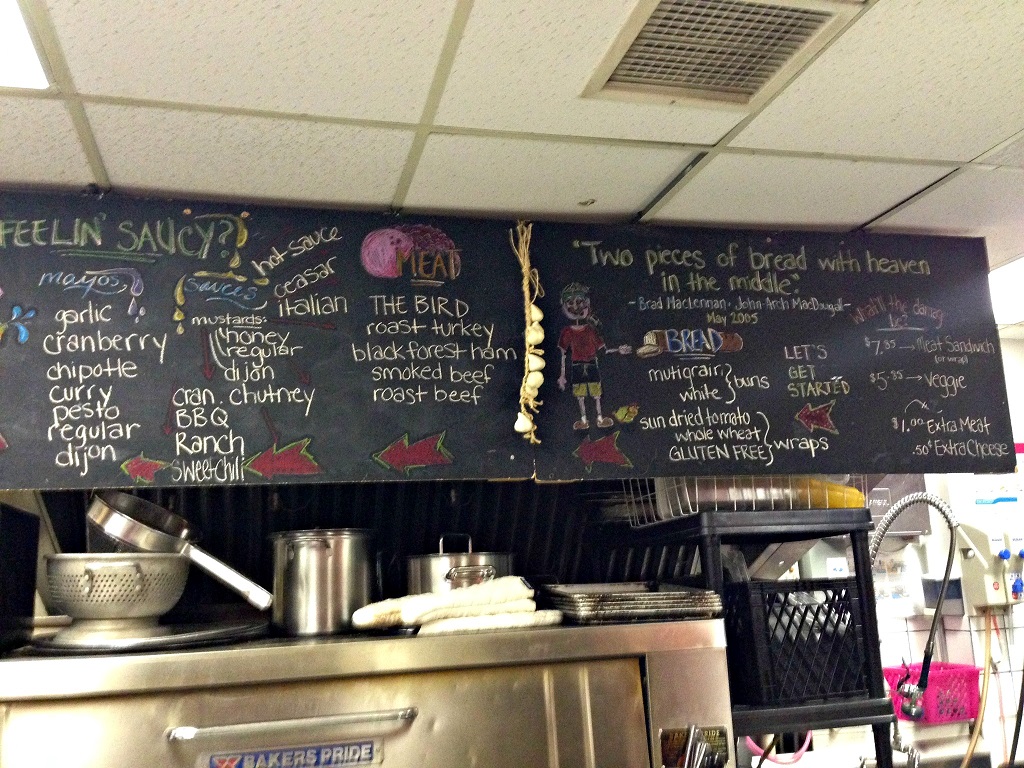 FEELIN' SAUCY?
mayos
garlic
cranberry
chipotle
curry
pesto
regular
dijon
sauces
hot sauce
ceasar
italian
mustards:
honey
regular
dijon
cran. chutney
BBQ
Ranch
sweet chili
MEAT
THE BIRD
roast turkey
black forest ham
smoked beef
roast beef
"Two pieces of bread with heaven
in the middle."
- Brad Maclennan + John Arch MacDougal -
May 2005
BREAD
multigrain
white
buns
sun dried tomato
whole wheat
GLUTEN FREE
wraps
LET'S
GET
STARTED
What'll the damage
be?
$7.95 → Meat Sandwich
(or wrap)
$5.95 → Veggie
$1.00 Extra Meat
.50¢ Extra Cheese
BAKERS PRIDE